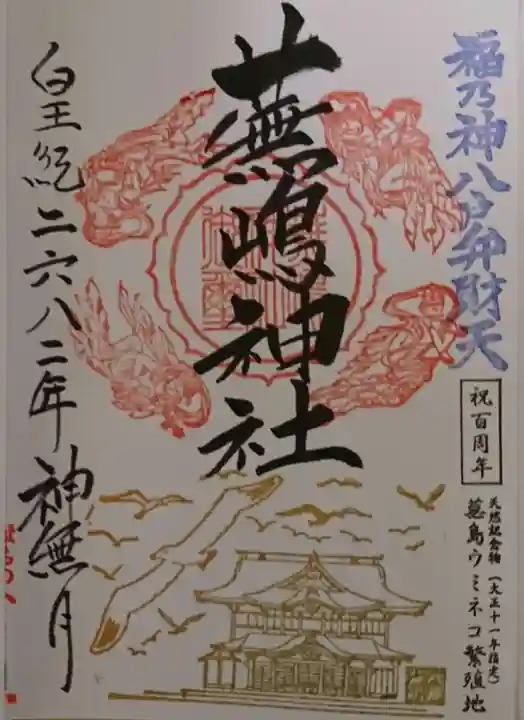 福乃神八方弁財天
祝百周年
天然記念物(大正十一年指定)
蕪島ウミネコ繁殖地
蕪嶋神社
皇紀二六八二年神無月